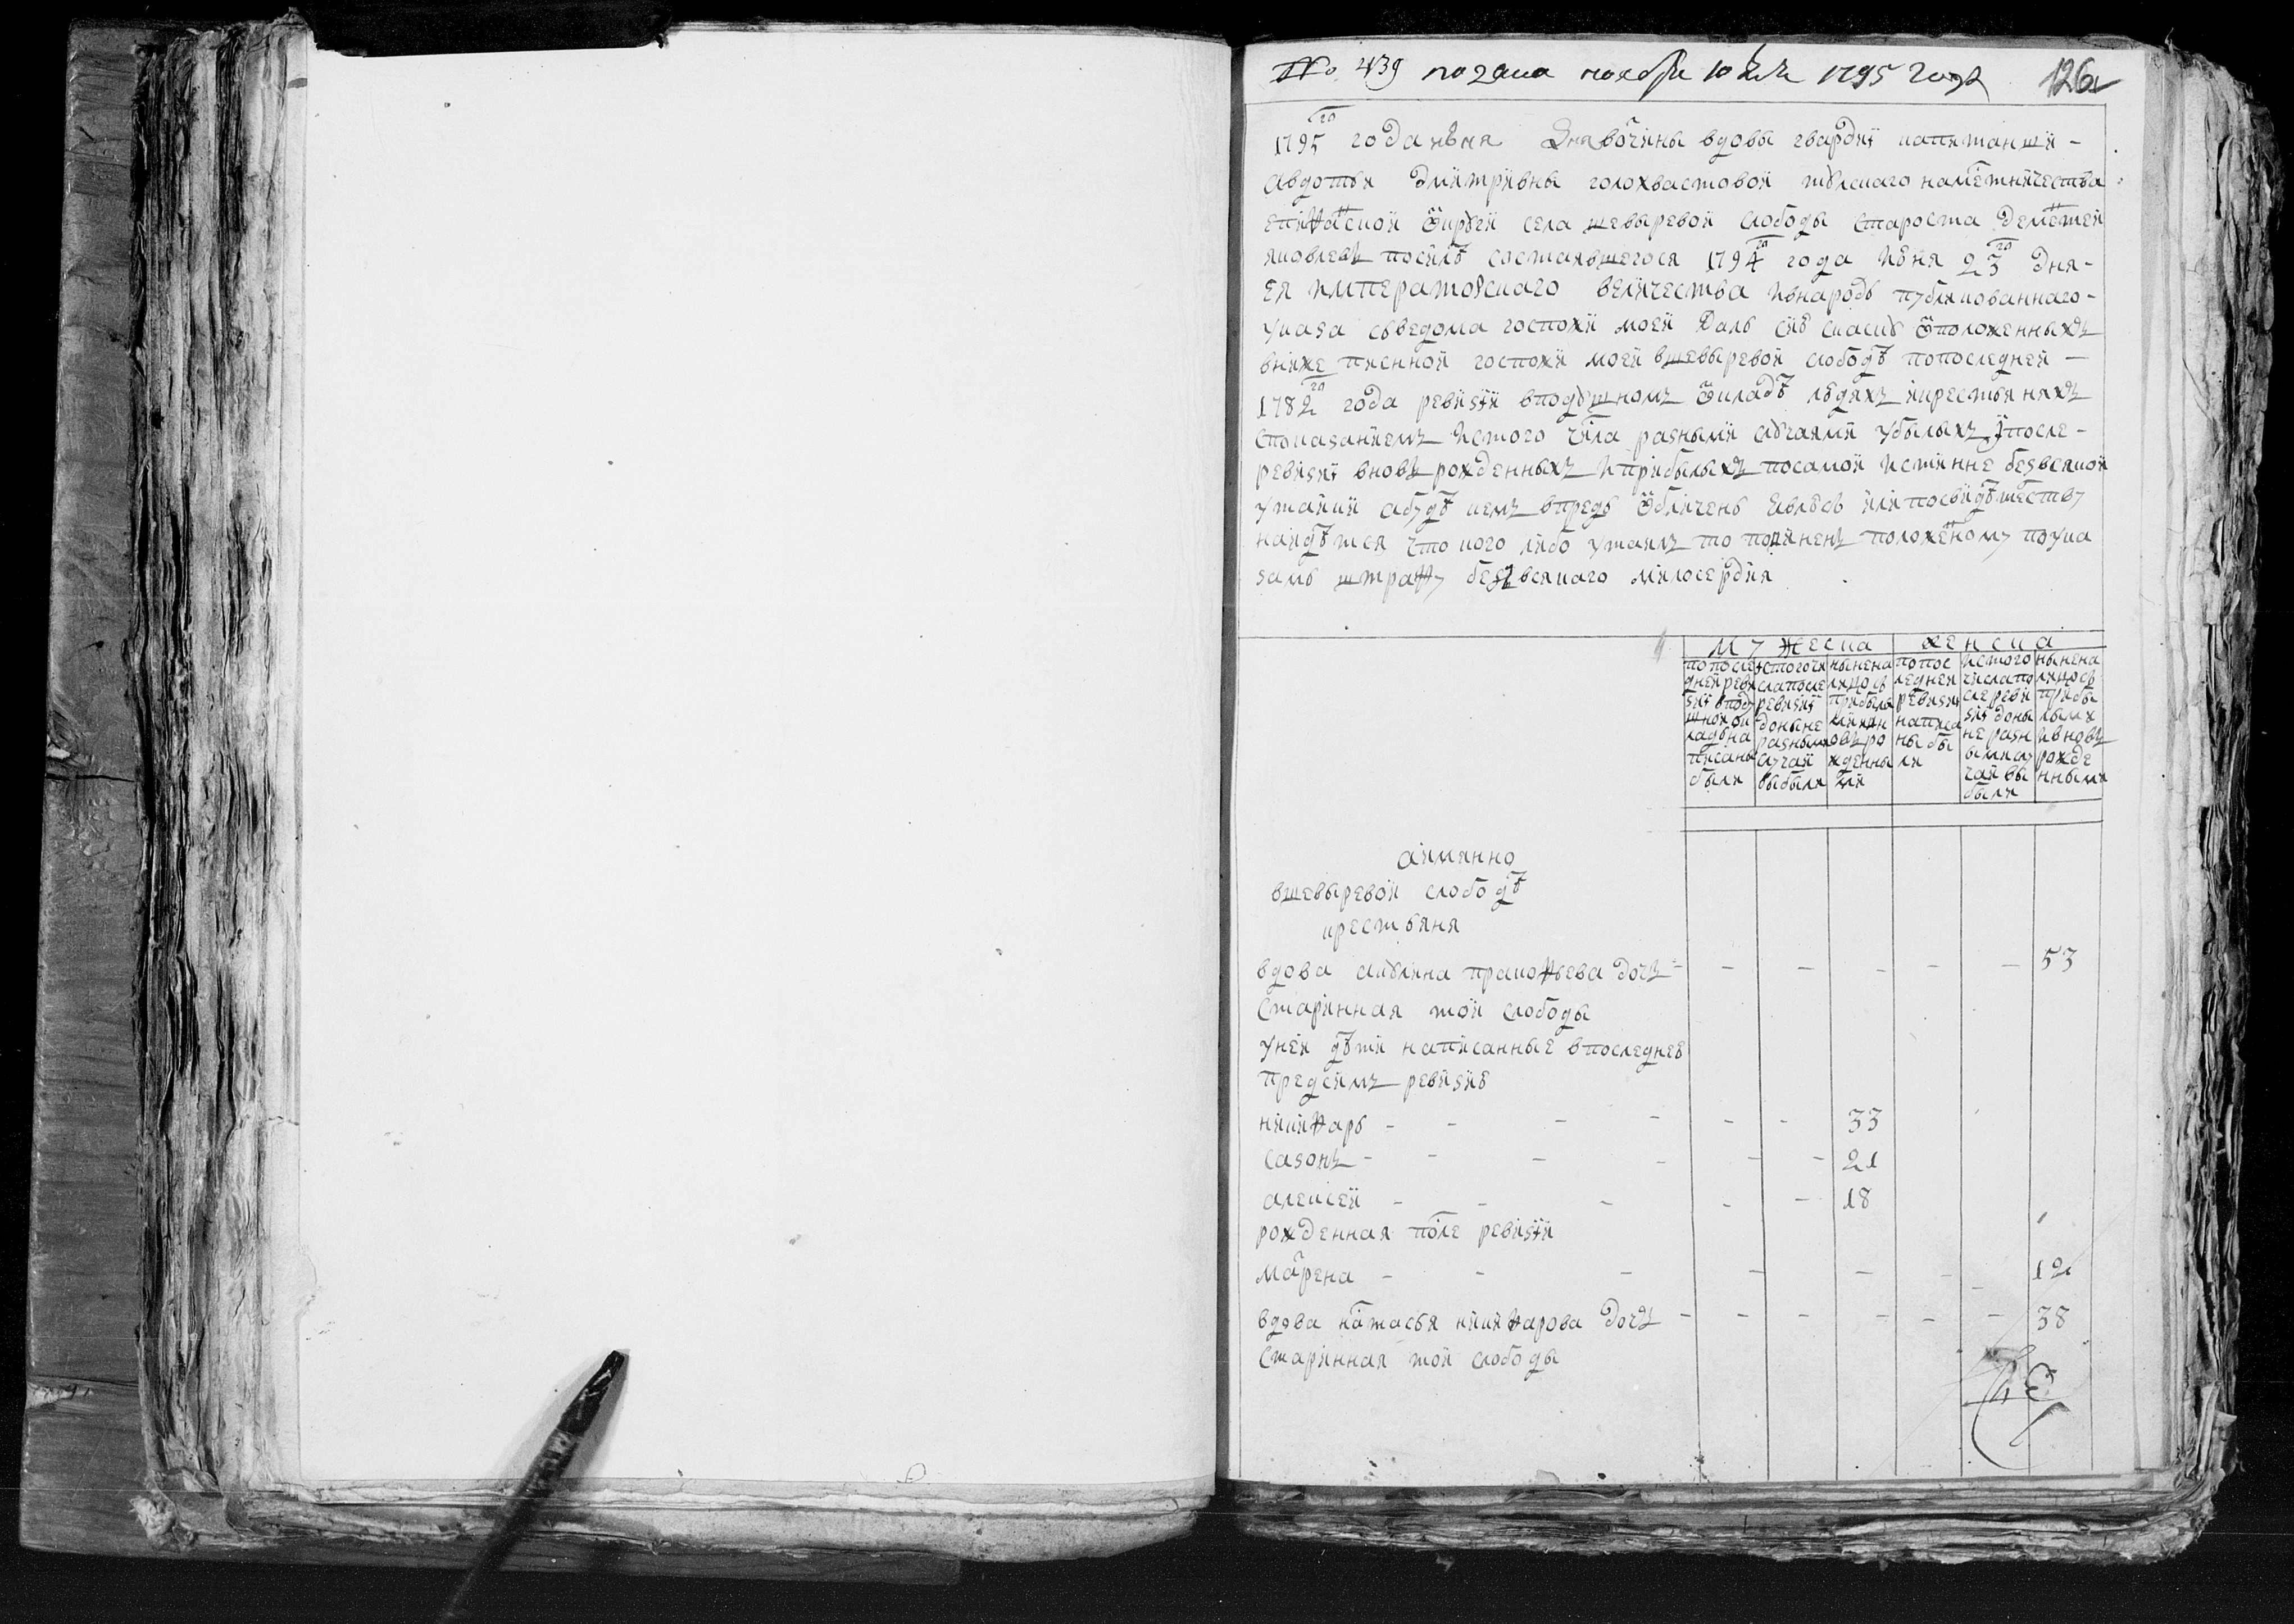 № 439 подана ноября 10 числа 1795 года 126
1795го года июня дня вотчины вдовы гвардии капитанши -
авдотьи дмитривны голохвастовой тулскаго наместничества
епифанской округи села шевыревой слободы староста дементей
яковлевъ посиле состаявшегося 1794го года июня 23го дня -
ея императорскаго величества ивнародъ публикованнаго -
указа сведома госпожи моей далъ сию скаску оположенныхъ
вниже писнной госпожи моей вшевыревой слободе попоследней -
1782го года ревизии вподушномъ окладе людяхъ икрестьяняхъ
споказаниемъ истого чила разными слчаями убылыхъ ипосле -
ревизии вновь рожденныхъ иприбылыхъ посамой истинне безвсякой
утайки абуде кемъ впредь обличенъ явлюсь или посвидетеству
найдется что кого либо утаилъ то повиненъ положеному поука
замъ штрафу безъвсякаго милосердия
мужеска женска
попосле
дней реви
зии впод
ушной ок
ладъ на
писаны
были
истогочи
слапосле
ревизии
доныне
разными
случаи
выбыли
ныне на
лицось
прибыла
ми ин
овь ро
жденны
ми
попос
ледней
ревизии
написа
ны бы
ли
истого
числапо
сле реви
зии доны
не разн
ыми слу
чаи вы
были
ныне на
лицось
прибы
лыми
ивновь
рожде
нными
аимянно
вшевыревой слободе
крестьяня
вдова акулина пракофьева дочь - - - - - - 53
старинная той слободы
уней дети написанные впоследнею
предсимъ ревизию
никифаръ - - - - - - 33
сазонъ - - - - - - 21
алексей - - - - - 18
рожденная поле ревизии
марена - - - - - - - 12
вдова натасья никифарова дочь - - - - - - 38
старинная той слободы